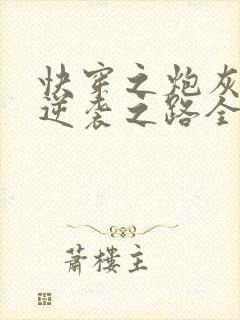 快穿之炮灰
逆袭之路全
蕭樓主